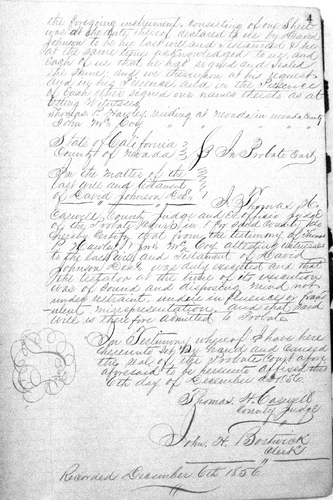 4
the foregoing instrument, consisting of one Sheet
was at the date thereof declared to us by David
Johnson to be his last will and testament & he
at the same time acknowledged to us and
each of us that he had signed and sealed
the same, and we thereupon at his request
and in his presence and in the presence
of each other signed our names thereto as at
testing witnesses
Thomas P. Hawley residing at Nevada in Nevada County
John McCoy " " " "
State of California
County of Nevada } In Probate Court
In the matter of the
last will and testament
of David Johnson Decd
I Thomas H.
Caswell County Judge and Ex officio Judge
of the Probate Court in & for said County do
hereby Certify that from the testimony of Thomas
P Hawley & Jno McCoy attesting witnesses
to the last will and testament of David
Johnson Decd was duly executed and that
the testator at the time of its execution
was of sound and disposing mind not
under restraint, undue influence or fraud
ulent misrepresentation, and that said
will is therefore admitted to Probate
In Testimony whereof I have here
hereunto set my hand and caused
the seal of the Probate Court afore
aforesaid to be hereunto affixed this
6th day of December AD 1856.
Thomas H. Caswell
County Judge
John H. Bostwick
Clerk
Recorded December 6th 1856